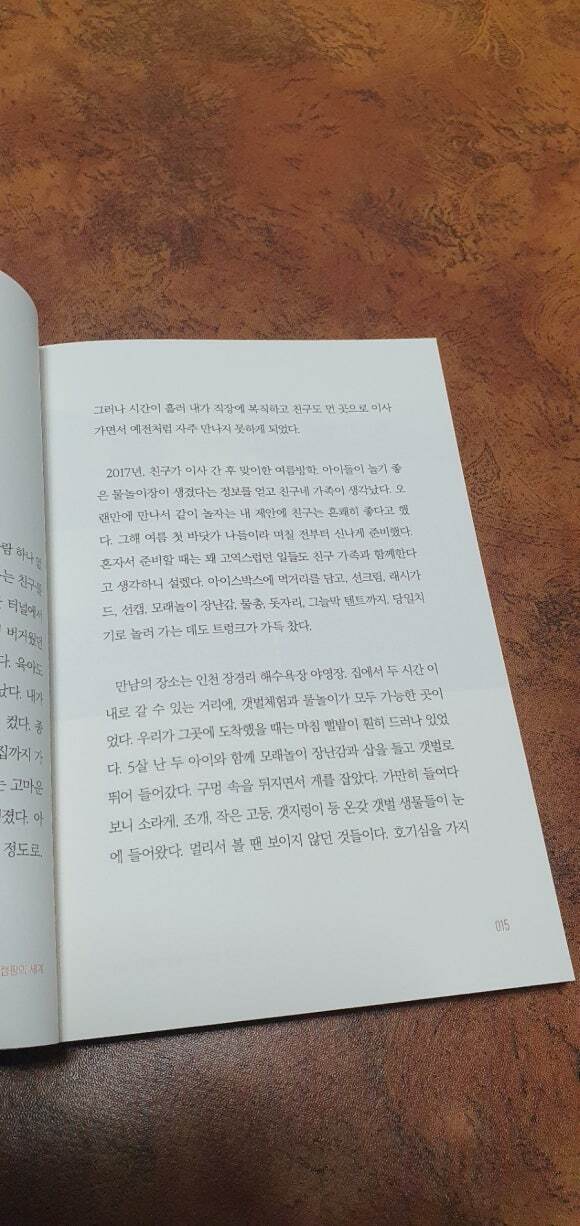 람 하나 없
는 친구를
터널에서
버거웠던
다. 육아도
났다. 내가
켰다. 종
집까지 가
는 고마운
겼다. 아
정도로.
캠핑의 세계
그러나 시간이 흘러 내가 직장에 복직하고 친구도 먼 곳으로 이사
가면서 예전처럼 자주 만나지 못하게 되었다.
2017년. 친구가 이사 간 후 맞이한 여름방학. 아이들이 놀기 좋
은 물놀이장이 생겼다는 정보를 얻고 친구네 가족이 생각났다. 오
랜만에 만나서 같이 놀자는 내 제안에 친구는 흔쾌히 좋다고 했
다. 그해 여름 첫 바닷가 나들이라 며칠 전부터 신나게 준비했다.
혼자서 준비할 때는 꽤 고역스럽던 일들도 친구 가족과 함께한다
고 생각하니 설렜다. 아이스박스에 먹거리를 담고, 선크림, 래시가
드, 선캡, 모래놀이 장난감, 물총, 돗자리, 그늘막 텐트까지. 당일치
기로 놀러 가는 데도 트렁크가 가득 찼다.
만남의 장소는 인천 장경리 해수욕장 야영장. 집에서 두 시간 이
내로 갈 수 있는 거리에, 갯벌체험과 물놀이가 모두 가능한 곳이
었다. 우리가 그곳에 도착했을 때는 마침 뻘밭이 훤히 드러나 있었
다. 5살 난 두 아이와 함께 모래놀이 장난감과 삽을 들고 갯벌로
뛰어 들어갔다. 구멍 속을 뒤지면서 게를 잡았다. 가만히 들여다
보니 소라게, 조개, 작은 고둥, 갯지렁이 등 온갖 갯벌 생물들이 눈
에 들어왔다. 멀리서 볼 땐 보이지 않던 것들이다. 호기심을 가지
015